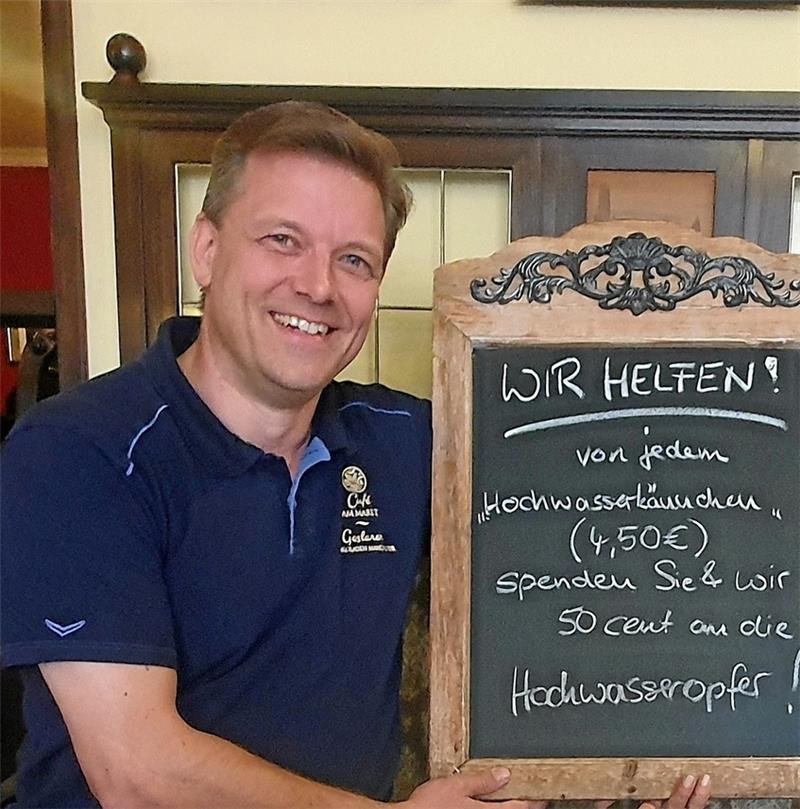 WIR HELFEN!
von jedem
„Hochwasserkännchen„
(4,50€)
spenden Sie & wir
50 cent an die
Hochwasseropfer!
Café
AM MARKT
Goslarer